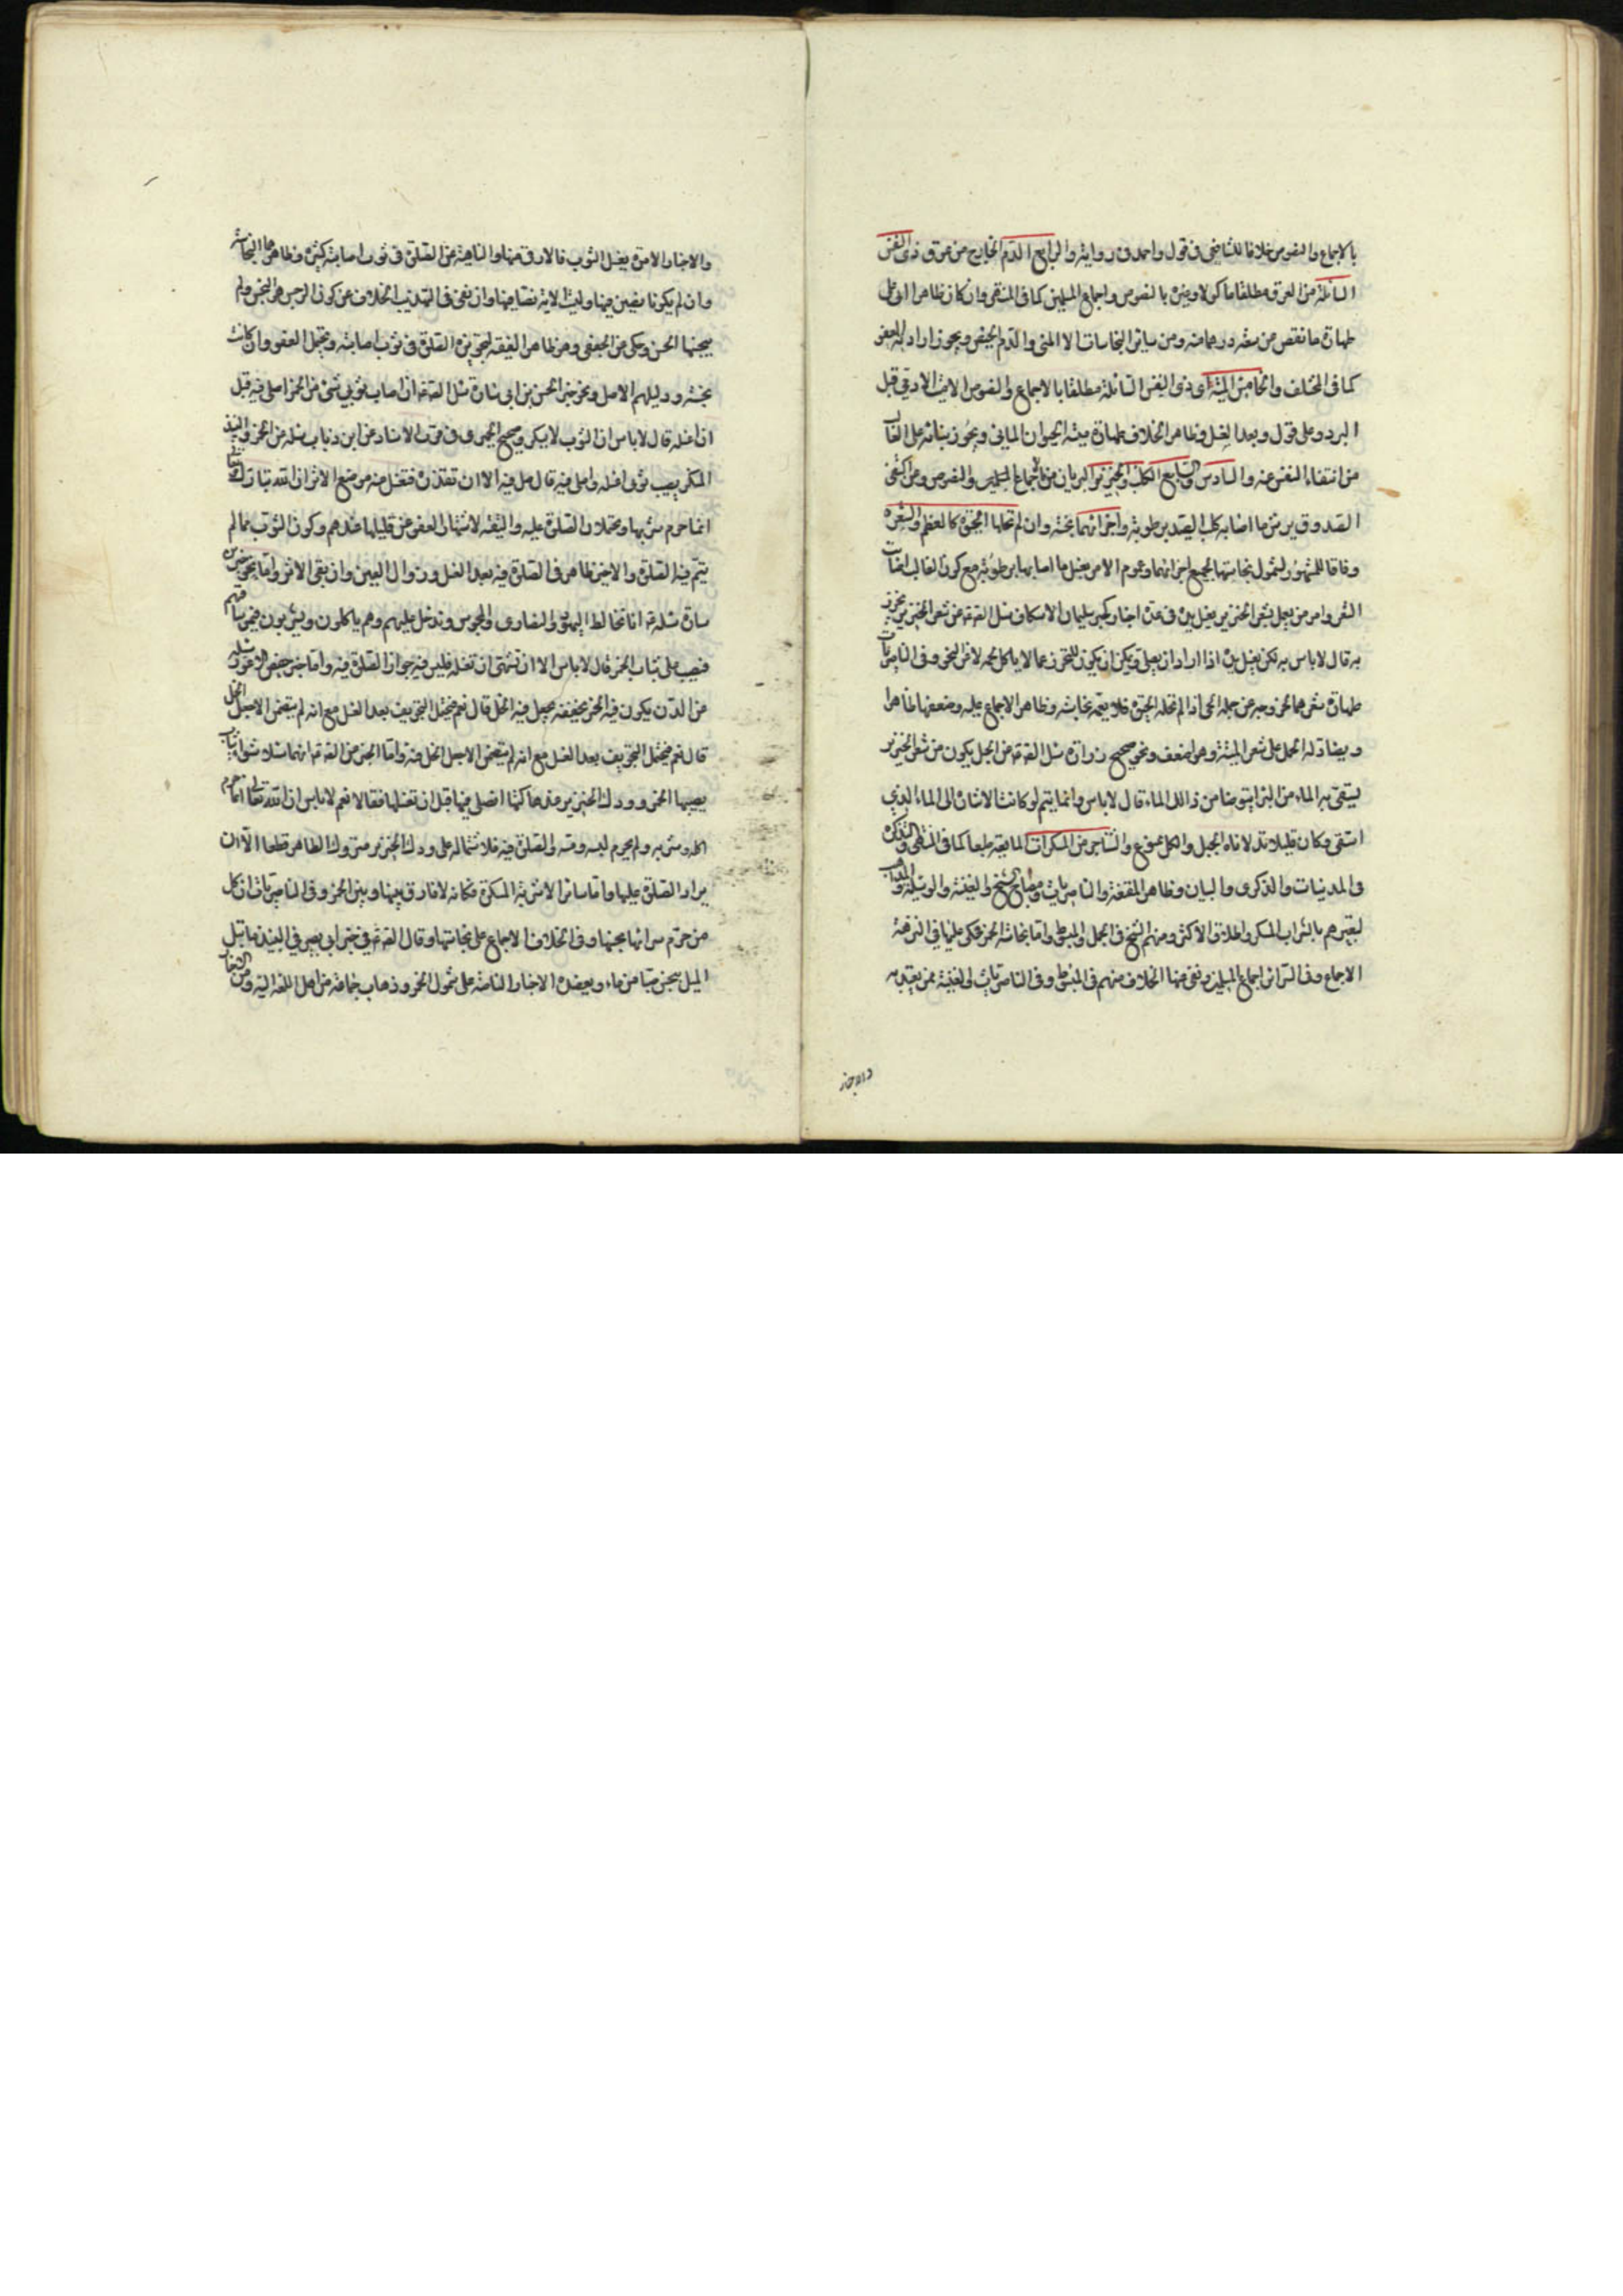 بالاجماع والنصوص خلافا للشافعي في قول واحمد في رواية والرابع الدم الخارج من عرق ذي النفس
السائلة من العرق مطلقا ماكولا وغيره بالنصوص واجماع المسلمين كما في المنتهى وان كان ظاهر ابي علي
طهارة ما نقص من سعة درهم منه ومن سائر النجاسات الا المني والدم الحيض ويجوز ارادته العفو
كما في المختلف والخامس الميتة اي ذي النفس السائلة مطلقا بالاجماع والنصوص الا ميت الادمي قبل
البرد وعلى قول وبعد الغسل وظاهر الخلاف طهارة ميتة الحيوان المائي ويجوز بناؤه على الغالب
من انتفاء النفس عنه والسادس والسابع الكلب والخنزير البريان من الاجماع المسلمين والنصوص ومن اكتفى
الصدوق برش ما اصابه كلب الصيد برطوبة واجزائهما نجسة وان لم تحلها الحيوة كالعظم والشعر
وفاقا للمشهور لشمول نجاستها لجميع اجزائهما وعموم الامر بغسل ما اصابها برطوبة مع كون الغالب اصابة
الشعر وامر من يعمل شعر الخنزير بغسل يده في عدة اخبار وخبر سليمان الاسكاف سئل الصادق عن شعر الخنزير يخرز
به قال لا باس به لكن يغسل يده اذا اراد ان يصلي ويمكن ان يكون للتحرز عما لا ياكل لحمه لا من النجس وفي الناصريات
طهارة شعرهما لخروجه من جملة الحي اذا لم تحله الحيوة فلا يعمه نجاسته وظاهر الاجماع عليه وضعفها ظاهر
ويضاد له الحمل على شعر الميتة وهو اضعف ونحو صحيح زرارة سئل الصادق عن الحبل يكون من شعر الخنزير
يستقى به الماء من البئر ايتوضا من ذلك الماء قال لا باس وانما يتم لو كانت الاشارة الى الماء الذي
استقى وكان قليلا تدلاقاه الحبل والكل ممنوع والثامن المسكرات المايعة طبعا كما في المنتهى والتذكرة
في المدنيات والذكرى والبيان وظاهر المقنعة والناصريات ومصباح الشيخ والغنية والوسيلة والمهذب
لتعبيرهم بالشراب المسكر واطلاق الاكثر ومنهم الشيخ في الجمل والمبسوط واما نجاسة الخمر فحكى عليها في النزهة
الاجماع وفي السرائر اجماع المسلمين ونفى عنها الخلاف منهم في المبسوط وفي الناصريات والغنية ممن يعتد به
والاخبار
والاخبار الامرة بغسل الثوب والاواني منها والناهية عن الصلوة في ثوب اصابته كثيرة وظاهرها النجاسة
وان لم يكونا نصين فيها وليست الاية نصا فيها وان نفى في التهذيب الخلاف عن كون الرجس هو النجس ولم
ينجسها الحسن وحكي عن الجعفي وهو ظاهر الفقيه لتجويزه الصلوة في ثوب اصابته ويحتمل العفو وان كانت
نجسة ودليلهم الاصل ونحو خبر الحسن بن ابي سارة سئل الصادق ان اصاب ثوبي شيء من الخمر اصلي فيه قبل
ان اغسله قال لا باس ان الثوب لا يسكر وصحيح الحميري في قرب الاسناد عن ابن رئاب سئله عن الخمر والنبيذ
المسكر يصيب ثوبي اغسله واصلي فيه قال صل فيه الا ان تقذره فتغسل منه موضع الاثر ان الله تبارك وتعالى
انما حرم شربها ويحتملان الصلوة عليه والتقية لاشتهار العفو عن قليلها عندهم وكون الثوب مما لم
يتم فيه الصلوة والاخير ظاهر في الصلوة فيه بعد الغسل وزوال العين وان بقي الاثر واما نحو خبر ابن
سارة سئله انا نخالط اليهود والنصارى والمجوس وندخل عليهم وهم ياكلون ويشربون فيمر ساقيهم
فيصب على ثياب الخمر قال لا باس الا ان تشتهي ان تغسله فليس فيه جواز الصلوة فيه واما خبر حفص الاعور سئله
عن الدن يكون فيه الخمر يجففه يجعل فيه الخل قال نعم فيحتمل التجفيف بعد الغسل مع انه لم يتعرض الا لجعل الخل
قال نعم فيحتمل التجفيف بعد الغسل مع انه لم يتعرض الا لجعل الخل فيه واما الخبر عن الصادق انهما سئلا شراء ثياب
يصيبها الخمر وودك الخنزير عند حاكتها انصلي فيها قبل ان نغسلها فقالا نعم لا باس ان الله تعالى انما حرم
اكله وشربه ولم يحرم لبسه ومسه والصلوة فيه فلاشتماله على ودك الخنزير متروك الظاهر قطعا الا ان
يراد الصلوة عليها واما سائر الاشربة المسكرة فكانه لا فارق بينها وبين الخمر وفي الناصريات ان كل
من حرم شرابها نجسها وفي الخلاف الاجماع على نجاستها وقال الصادق في خبر ابي بصير في النبيذ ما يبل
الميل ينجس حبا من ماء ويعضده الاخبار الناصة على شمول الخمر وذهاب جماعة من اهل اللغة اليه ومن النجاسة